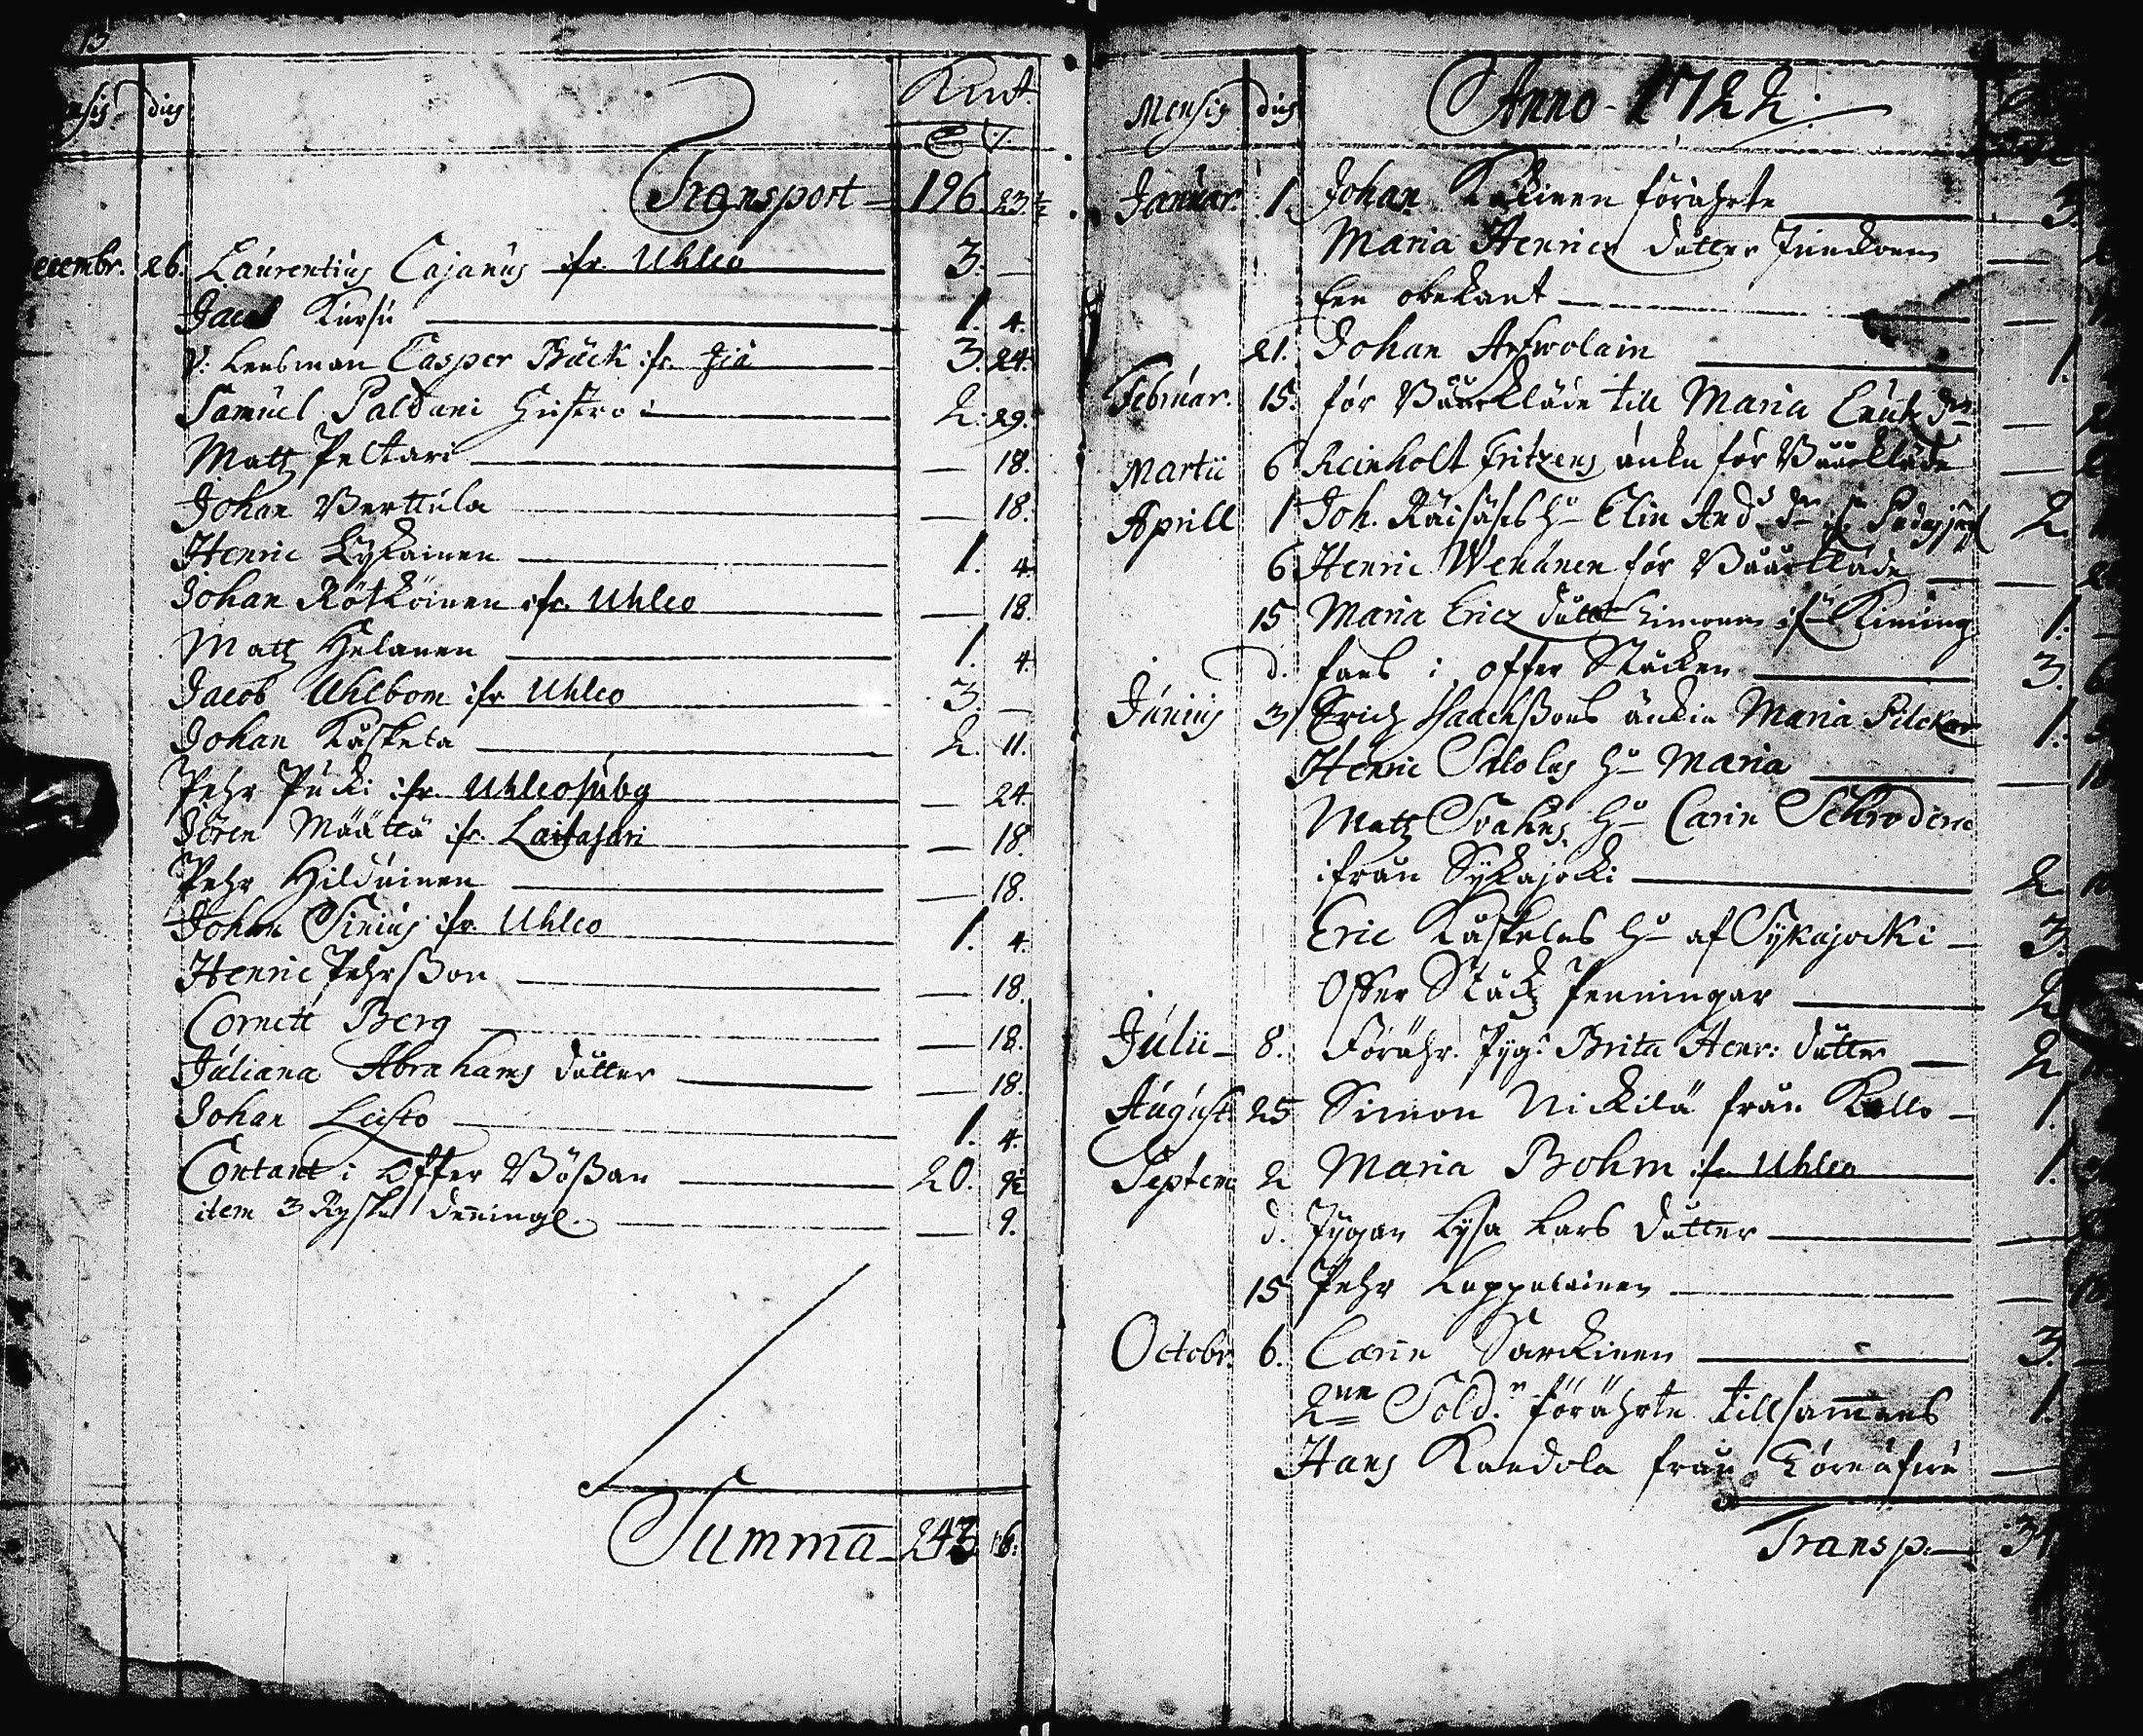 13
nsis dies Kmt.
Transport 196 23 1/2
ecembr. 26. Laurentius Cajanus ifr. Uhleo 3. —
Jacob Kursu 1. 4.
V: Lensman Casper Bäck ifr. Ijå 3. 24.
Samuel Paldani Hustro 2. 29.
Matz Peltari — 18.
Johan Verttula — 18.
Henric Lykainen 1. 4.
Johan Rötköinen ifr. Uhleo — 18.
Matz Helanen 1. 4.
Jacob Uhlbom ifr Uhleo 3. —
Johan Kåskela 2. 11.
Pehr Pucki ifr. Uhleosubg — 24.
Jören Määttä ifr. Laitasari — 18.
Pehr Hilduinen — 18.
Johan Sirius ifr. Uhleo 1. 4.
Henric Pehrsson — 18.
Cornett Berg — 18.
Juliana Abrahams dåtter — 18.
Johan Leisto 1. 4.
Contant i Offer Bößan 20. 9 1/2
item 3 Ryska denningl. — 9.
Summa 243. 16.
Mensis dies Anno 1722.
Januar. 1. Johan Kckinen förährte 3.
Maria Henrics dåtter —
Een obekant —
21. Johan Arfwolain 1.
Februar. 15. för Båårkläde till Maria —
Martii 6 Reinholt Fritzens änka för Båårkläde —
Aprill 1 Joh. Räisäs hu Elin And. dr 2.
6 Henric Wenänen för Båårkläde —
15 Maria Erics dåtter Limonen ifrån Kiming 1.
d. fans i offer Stäcken 3.
Junius 3 Erich Isaachssons änkia Maria Pilckar 1.
Henric Salolas hu Maria —
Matz Svahns hu Carin Schroderi
ifrån Sykajocki 2
Eric Kåskelas hu af Sykajocki — 3.
Offer Stäck Penningar 2
Julii 8. Förähr. Pyg: Brita Henr: dåtter 2
August. 25 Simon Nickilä från Kello 1.
Septem 2 Maria Bohm ifr. Uhleo 1.
d. Pygan Lysa Lars dåtter —
15 Pehr Lappalainen —
Octobr. 6. Carin Sarckinen 3.
2ne Sold.r förährte tillsammans 1.
Hans Kandola från —
Transp. 31